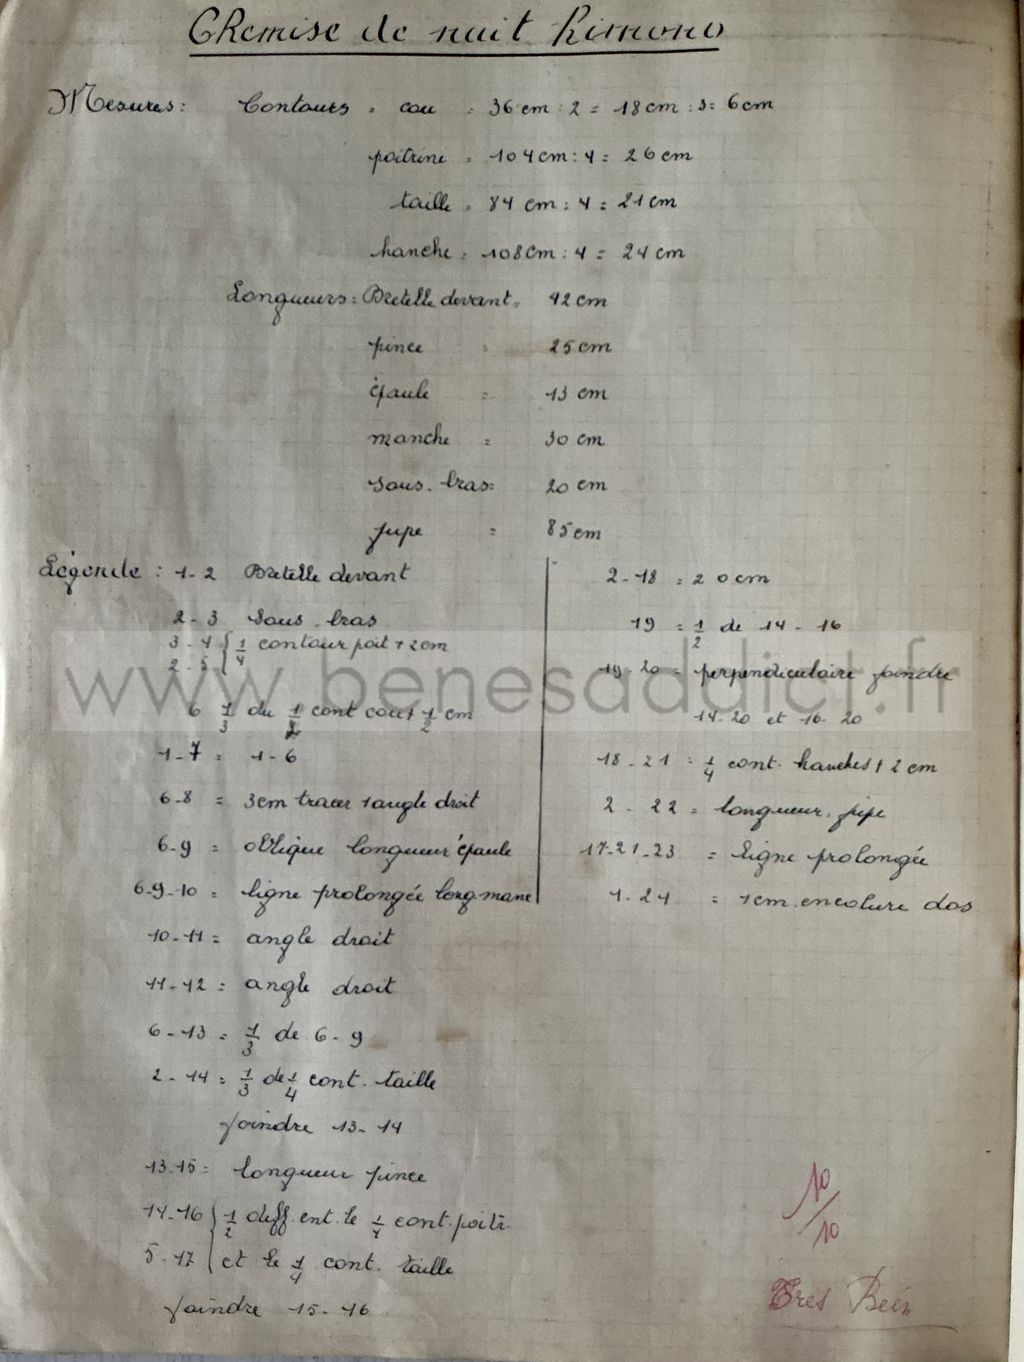 Chemise de nuit Kimono
Mesures : Contours = cou = 36 cm : 2 = 18 cm : 3 = 6 cm
poitrine = 104 cm : 4 = 26 cm
taille = 84 cm : 4 = 21 cm
hanche = 108 cm : 4 = 24 cm
Longueurs = Bretelle devant = 42 cm
pince = 25 cm
épaule = 13 cm
manche = 30 cm
sous-bras = 20 cm
jupe = 85 cm
Légende : 1-2 Bretelle devant
2-3 sous-bras
3-4 { 1/4 contour poit + 2 cm
2-5
6 1/3 du 1/2 cont cou + 1/2 cm
1-7 = 1-6
6-8 = 3cm tracer 1 angle droit
6-9 = oblique longueur épaule
6-9-10 = ligne prolongée long manc
10-11 = angle droit
11-12 = angle droit
6-13 = 1/3 de 6-9
2-14 = 1/3 de 1/4 cont. taille
joindre 13-14
13-15 = longueur pince
14-16 { 1/2 diff. ent. le 1/4 cont. poitr.
5-17 et le 1/4 cont. taille
joindre 15-16
2-18 = 20 cm
19 = 1/2 de 14-16
19-20 = perpendiculaire joindre
14-20 et 16-20
18-21 = 1/4 cont. hanches + 2 cm
2-22 = longueur jupe
17-21-23 = ligne prolongée
1-24 = 1cm encolure dos
10/10
Très Bien
www.benesaddict.fr